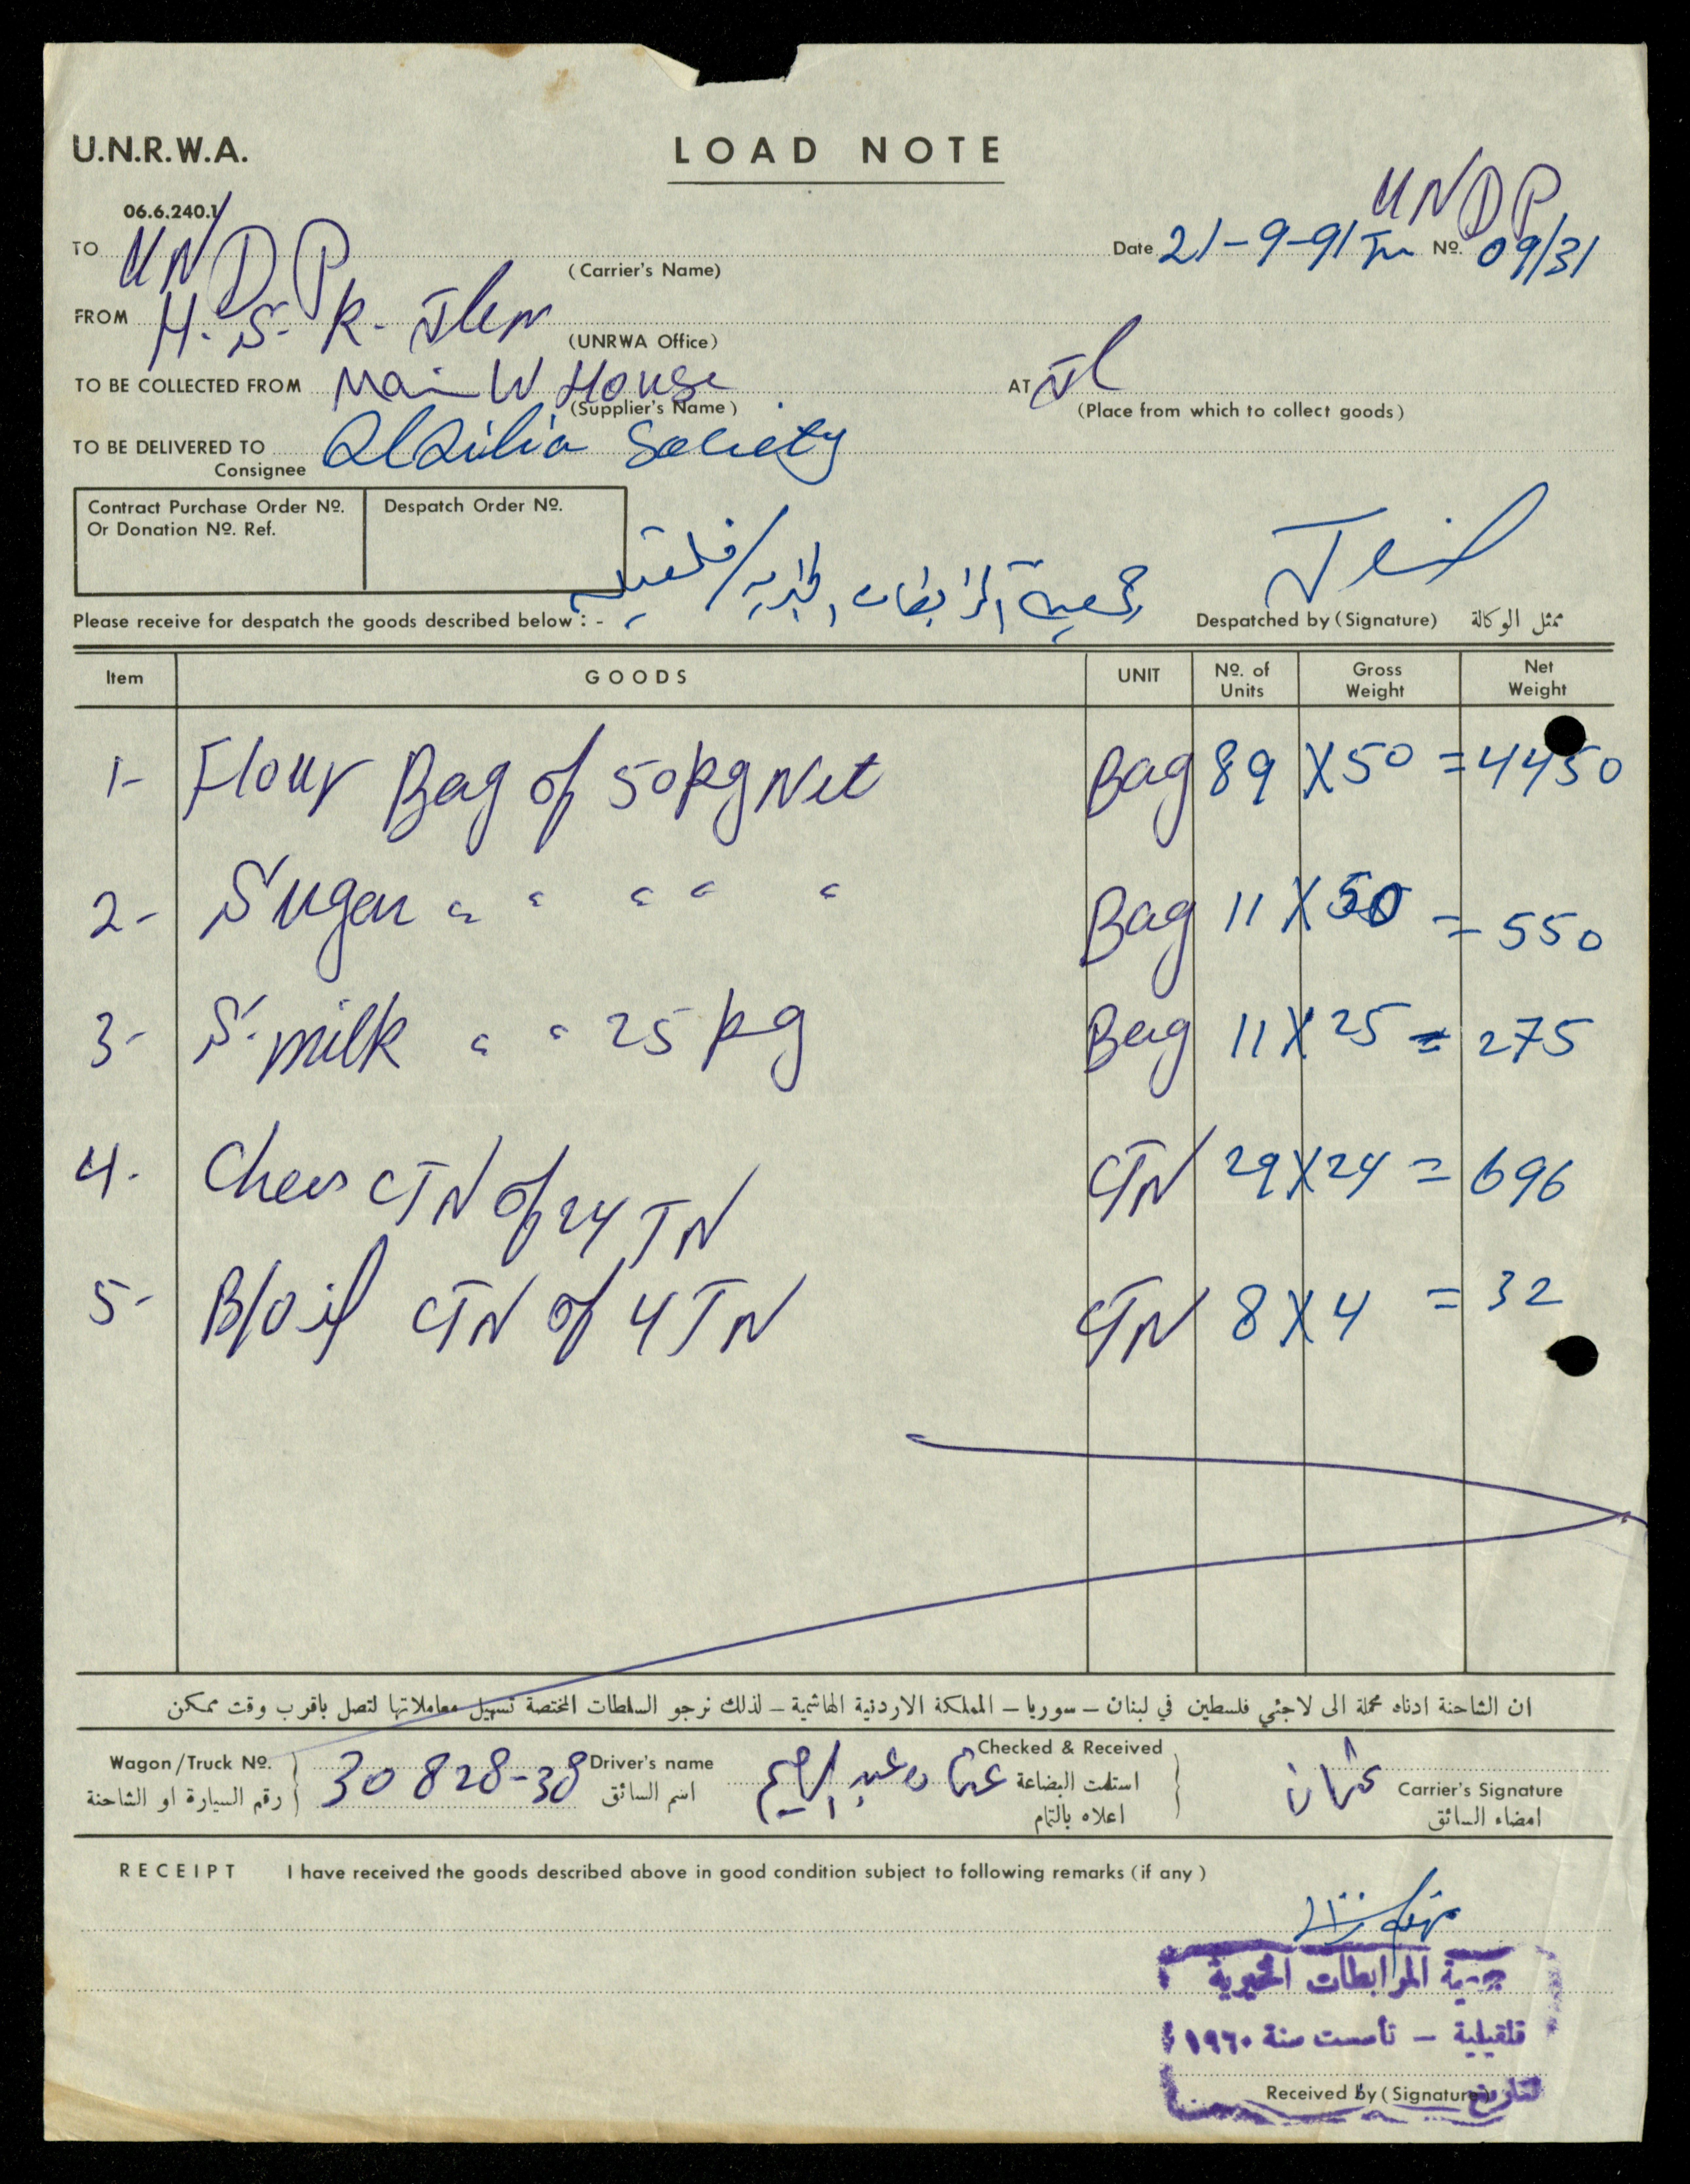 U.N.R.W.A.
LOAD NOTE
06.6.240.1
UNDP
TO UNDP
(Carrier's Name)
Date 21-9-91 Nº. 09/31
FROM H.S.R. Jlem
(UNRWA Office)
TO BE COLLECTED FROM Main W House AT Jl
(Supplier's Name)
(Place from which to collect goods)
TO BE DELIVERED TO
Consignee
Society
Contract Purchase Order Nº.
Or Donation Nº. Ref.
Despatch Order Nº.
جمعية المرابطات الخيرية / قلقيلية
Please receive for despatch the goods described below : -
Despatched by (Signature) ممثل الوكالة
Item GOODS UNIT Nº. of Units Gross Weight Net Weight
1- Flour Bag of 50kg Net Bag 89 X 50 = 4450
2- Sugar " " " " " Bag 11 X 50 = 550
3- S.milk " " 25 kg Bag 11 X 25 = 275
4- Chees CTN of 24 TN CTN 29 X 24 = 696
5- B/oil CTN of 4 TN CTN 8 X 4 = 32
ان الشاحنة ادناه محملة الى لاجئي فلسطين في لبنان – سوريا – المملكة الاردنية الهاشمية – لذلك نرجو السلطات المختصة تسهيل معاملاتها لتصل باقرب وقت ممكن
Wagon/Truck Nº. 30 828-38
رقم السيارة او الشاحنة
Driver's name عثمان عبد الرحيم
اسم السائق
Checked & Received
استلمت البضاعة
اعلاه بالتمام
عثمان
Carrier's Signature
امضاء السائق
RECEIPT I have received the goods described above in good condition subject to following remarks (if any)
جمعية المرابطات الخيرية
قلقيلية – تأسست سنة ١٩٦٠
Received by (Signature)
التاريخ